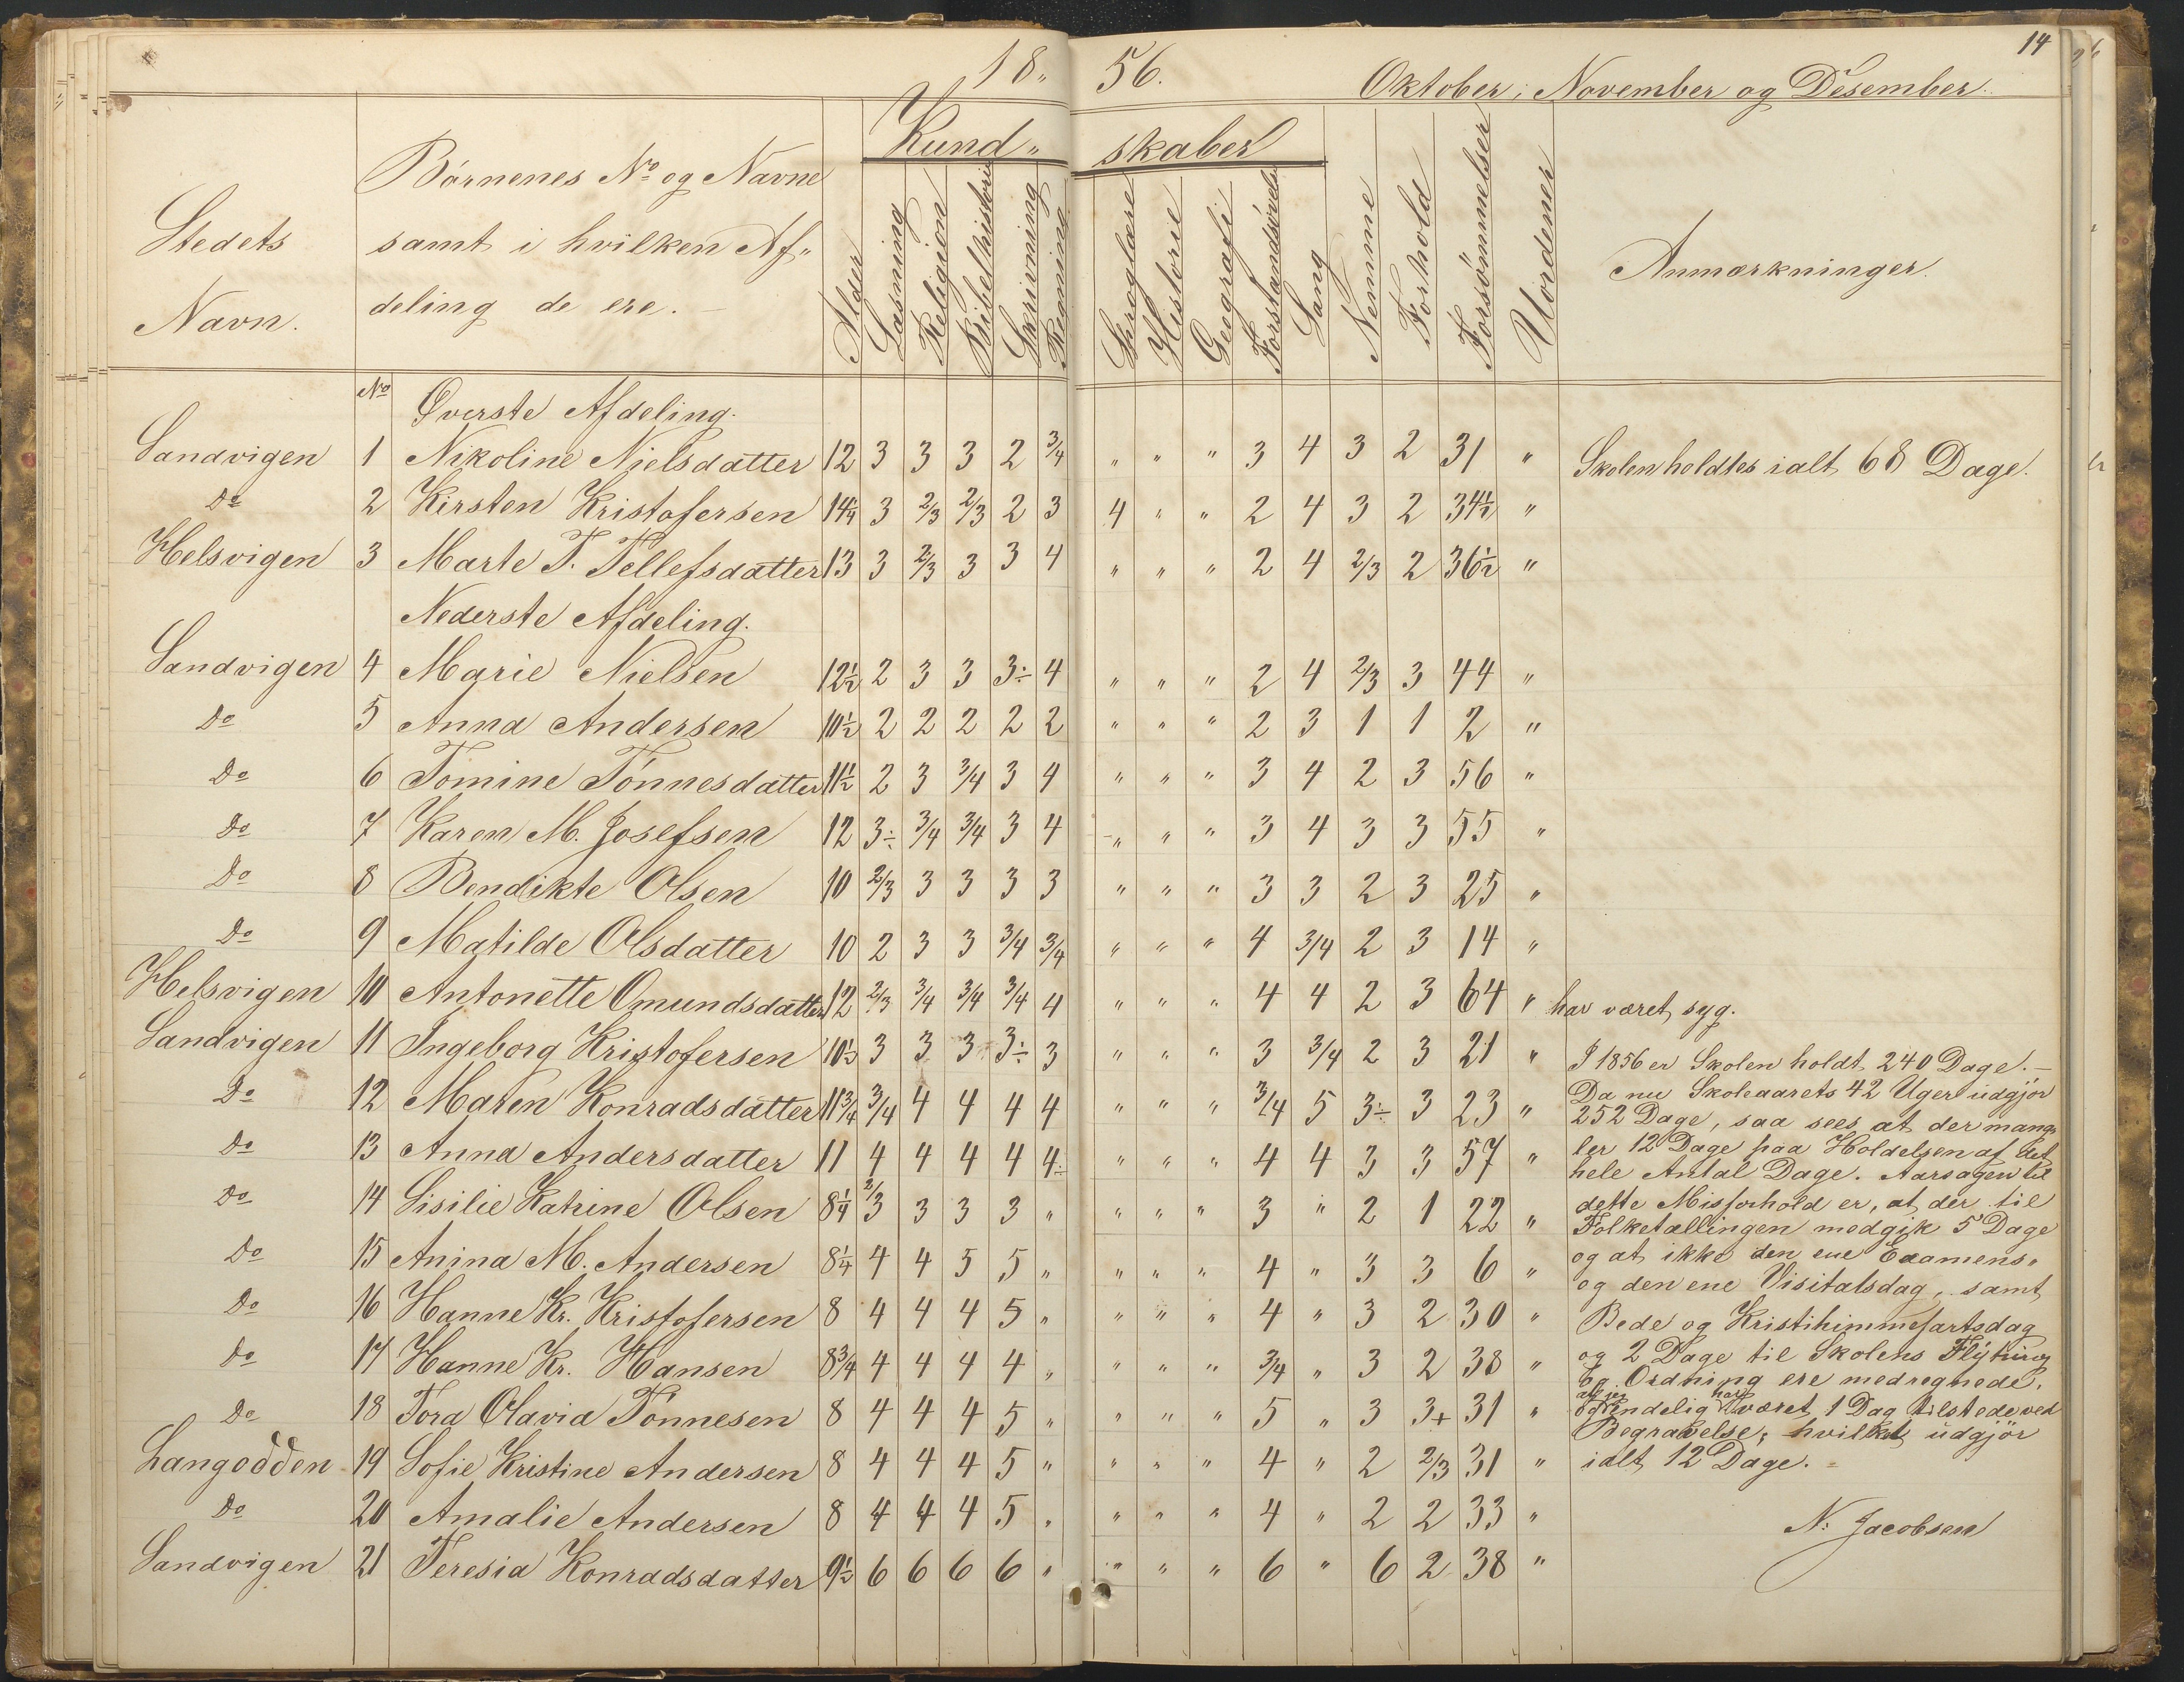 18„ 56. 14
Oktober, November og Desember.
Kund„ skaber
Stedets Navn.
Börnenes No og Navne
samt i hvilken Af„
deling de ere. –
Alder Læsning Religion Bibelhistorie Skrivning Regning Sproglære Historie Geografi Forstandsövels Sang Nemme Forhold Forsömmelser Uordener
Anmærkninger.
No Øverste Afdeling.
Sandvigen 1 Nikoline Nielsdatter 12 3 3 3 2 3/4 „ „ „ 3 4 3 2 31 „ Skolen holdtes ialt 68 Dage.
Do 2 Kirsten Kristofersen 14¼ 3 2/3 2/3 2 3 4 „ „ 2 4 3 2 34½ „
Helsvigen 3 Marte T. Tellefsdatter 13 3 2/3 3 3 4 „ „ „ 2 4 2/3 2 36½ „
Nederste Afdeling.
Sandvigen 4 Marie Nielsen 12½ 2 3 3 3÷ 4 „ „ „ 2 4 2/3 3 44 „
Do 5 Anna Andersen 10½ 2 2 2 2 2 „ „ „ 2 3 1 1 2 „
Do 6 Tomine Tönnesdatter 11½ 2 3 3/4 3 4 „ „ „ 3 4 2 3 56 „
Do 7 Karen M. Josefsen 12 3÷ 3/4 3/4 3 4 „ „ „ 3 4 3 3 55 „
Do 8 Bendikte Olsen 10 2/3 3 3 3 3 „ „ „ 3 3 2 3 25 „
Do 9 Matilde Olsdatter 10 2 3 3 3/4 3/4 „ „ „ 4 3/4 2 3 14 „
Helsvigen 10 Antonette Omundsdatter 12 2/3 3/4 3/4 3/4 4 „ „ „ 4 4 2 3 64 „ har været syg.
Sandvigen 11 Ingeborg Kristofersen 10½ 3 3 3 3÷ 3 „ „ „ 3 3/4 2 3 21 „
Do 12 Maren Konradsdatter 11¾ 3/4 4 4 4 4 „ „ „ 3/4 5 3÷ 3 23 „
Do 13 Anna Andersdatter 11 4 4 4 4 4÷ „ „ „ 4 4 3 3 57 „
Do 14 Sisilie Katrine Olsen 8¼ 2/3 3 3 3 „ „ „ „ 3 „ 2 1 22 „
Do 15 Anina M. Andersen 8¼ 4 4 5 5 „ „ „ „ 4 „ 3 3 6 „
Do 16 Hanne Kr. Kristofersen 8 4 4 4 5 „ „ „ „ 4 „ 3 2 30 „
Do 17 Hanne Kr. Hansen 8¾ 4 4 4 4 „ „ „ „ 3/4 „ 3 2 38 „
Do 18 Tora Olavia Tönnesen 8 4 4 4 5 „ „ „ „ 5 „ 3 3+ 31 „
Langodden 19 Sofie Kristine Andersen 8 4 4 4 5 „ „ „ „ 4 „ 2 2/3 31 „
Do 20 Amalie Andersen 8 4 4 4 5 „ „ „ „ 4 „ 2 2 33 „
Sandvigen 21 Teresia Konradsdatter 9½ 6 6 6 6 „ „ „ „ 6 „ 6 2 38 „
I 1856 er Skolen holdt 240 Dage. –
Da nu Skoleaarets 42 Uger udgjör
252 Dage, saa sees at der mang„
ler 12 Dage paa Holdelsen af det
hele Antal Dage. Aarsagen til
dette Misforhold er, at der til
Folketællingen medgik 5 Dage
og at ikke den ene Examens„
og den ene Visitatsdag, samt
Bede og Kristihimmefartsdag
og 2 Dage til Skolens Flytning
og Ordning ere medregnede,
og endelig at jeg har været 1 Dag tilstede ved
Begravelse, hvilket udgjör
ialt 12 Dage.
N: Jacobsen